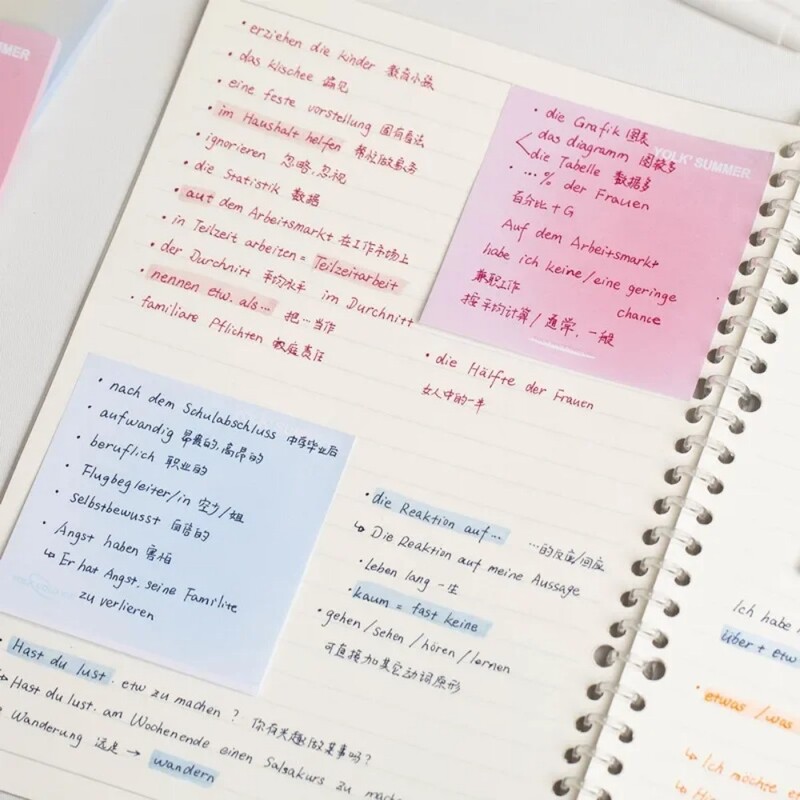 MER
• erziehen die kinder 教育小孩
• das klischee 偏见
• eine feste vorstellung 固有看法
• im Haushalt helfen 帮忙做家务
• ignorieren 忽略,忽视
• die Statistik 数据
• auf dem Arbeitsmarkt 在工作市场上
• in Teilzeit arbeiten = Teilzeitarbeit
• der Durchnitt 平均水平 im Durchnitt
• nennen etw. als... 把...当作
• familiare Pflichten 家庭责任
YOLK' SUMMER
• die Grafik 图表
das diagramm 图表多
die Tabelle 数据多
• ...% der Frauen
百分比+G
Auf dem Arbeitsmarkt
habe ich keine/eine geringe
chance
兼职工作
按平均计算/通常,一般
• die Hälfte der Frauen
女人中的一半
• nach dem Schulabschluss 中学毕业后
• aufwandig 昂贵的,高昂的
• beruflich 职业的
• Flugbegleiter/in 空少/姐
• selbstbewusst 自信的
• Angst haben 害怕
↳ Er hat Angst, seine Familite
zu verlieren
• die Reaktion auf... ...的反应/回应
↳ Die Reaktion auf meine Aussage
• Leben lang 一生
• kaum = fast keine
• gehen/sehen/hören/lernen
可直接加其它动词原形
• Hast du lust. etw zu machen? 你有兴趣做某事吗?
↳ Hast du lust. am Wochenende einen Salsakurs zu mach
• Wanderung 远足 → wandern
Ich habe
über + etw
• etwas/was
↳ Ich möchte e